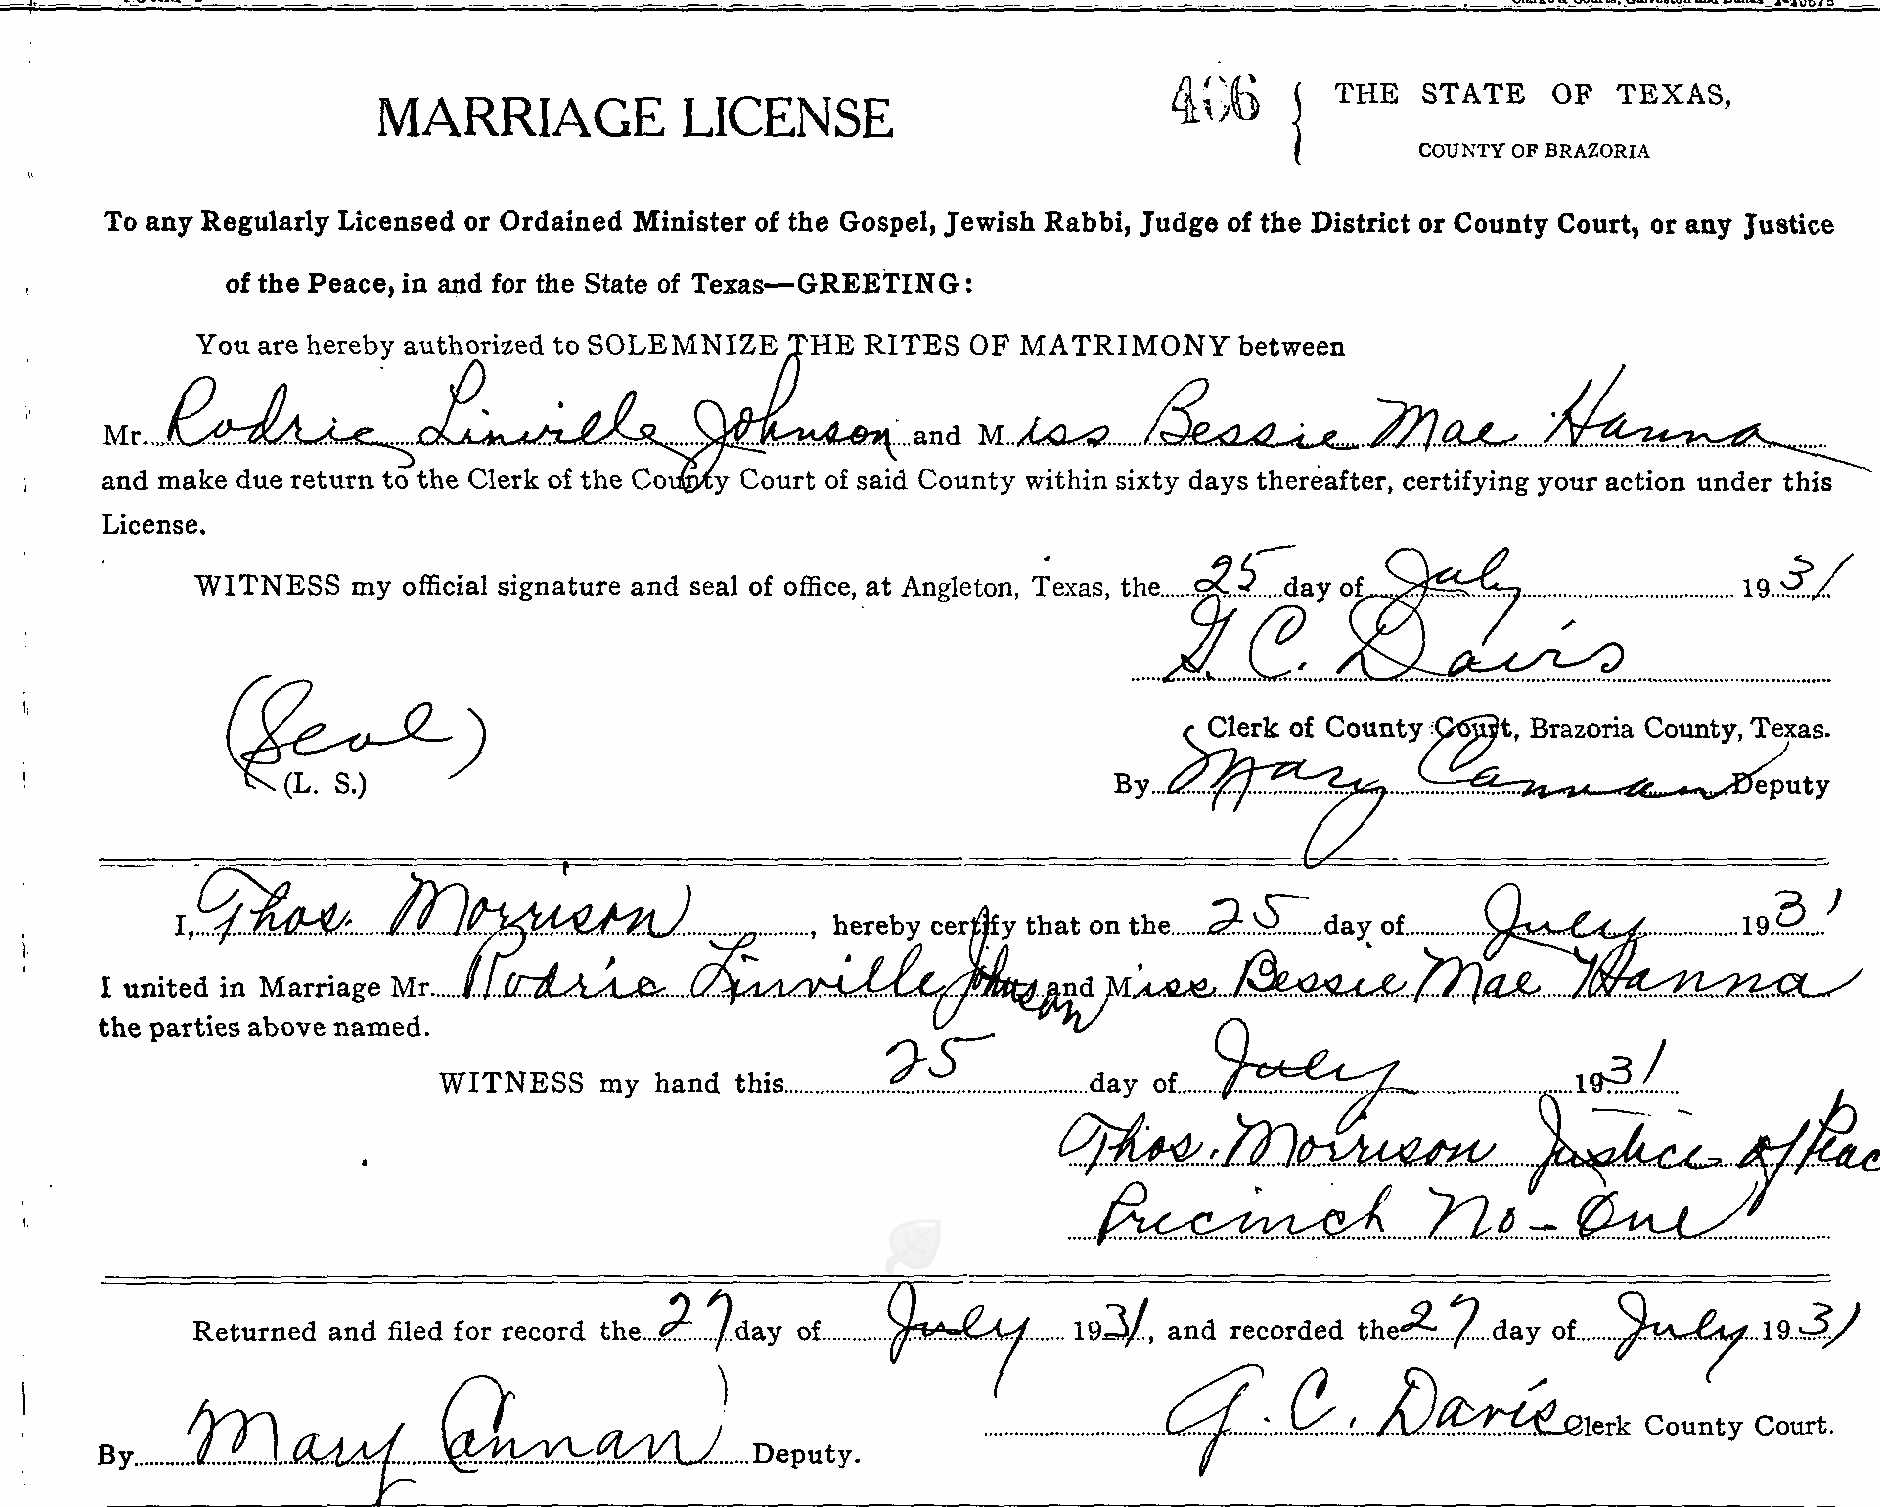 MARRIAGE LICENSE
THE STATE OF TEXAS,
COUNTY OF BRAZORIA
To any Regularly Licensed or Ordained Minister of the Gospel, Jewish Rabbi, Judge of the District or County Court, or any Justice
of the Peace, in and for the State of Texas—GREETING:
You are hereby authorized to SOLEMNIZE THE RITES OF MATRIMONY between
Mr. Rodric Linville Johnson and Miss Bessie Mae Hanna
and make due return to the Clerk of the County Court of said County within sixty days thereafter, certifying your action under this
License.
WITNESS my official signature and seal of office, at Angleton, Texas, the 25 day of July 1931
G. C. Davis
(Seal)
Clerk of County Court, Brazoria County, Texas.
(L. S.)
By Mary Cannan Deputy
I, Thos. Morrison, hereby certify that on the 25 day of July 1931
I united in Marriage Mr. Rodric Linville Johnson and Miss Bessie Mae Hanna
the parties above named.
WITNESS my hand this 25 day of July 1931
Thos. Morrison Justice of Peac
Precinch No - One
Returned and filed for record the 27 day of July 1931, and recorded the 27 day of July 1931
G. C. Davis Clerk County Court.
By Mary Cannan Deputy.